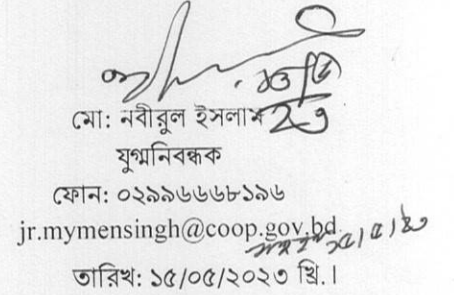 মো: নবীরুল ইসলাম
যুগ্মনিবন্ধক
ফোন: ০২৯৯৬৬৬৮১৯৬
jr.mymensingh@coop.gov.bd
তারিখ: ১৫/০৫/২০২৩ খ্রি.।